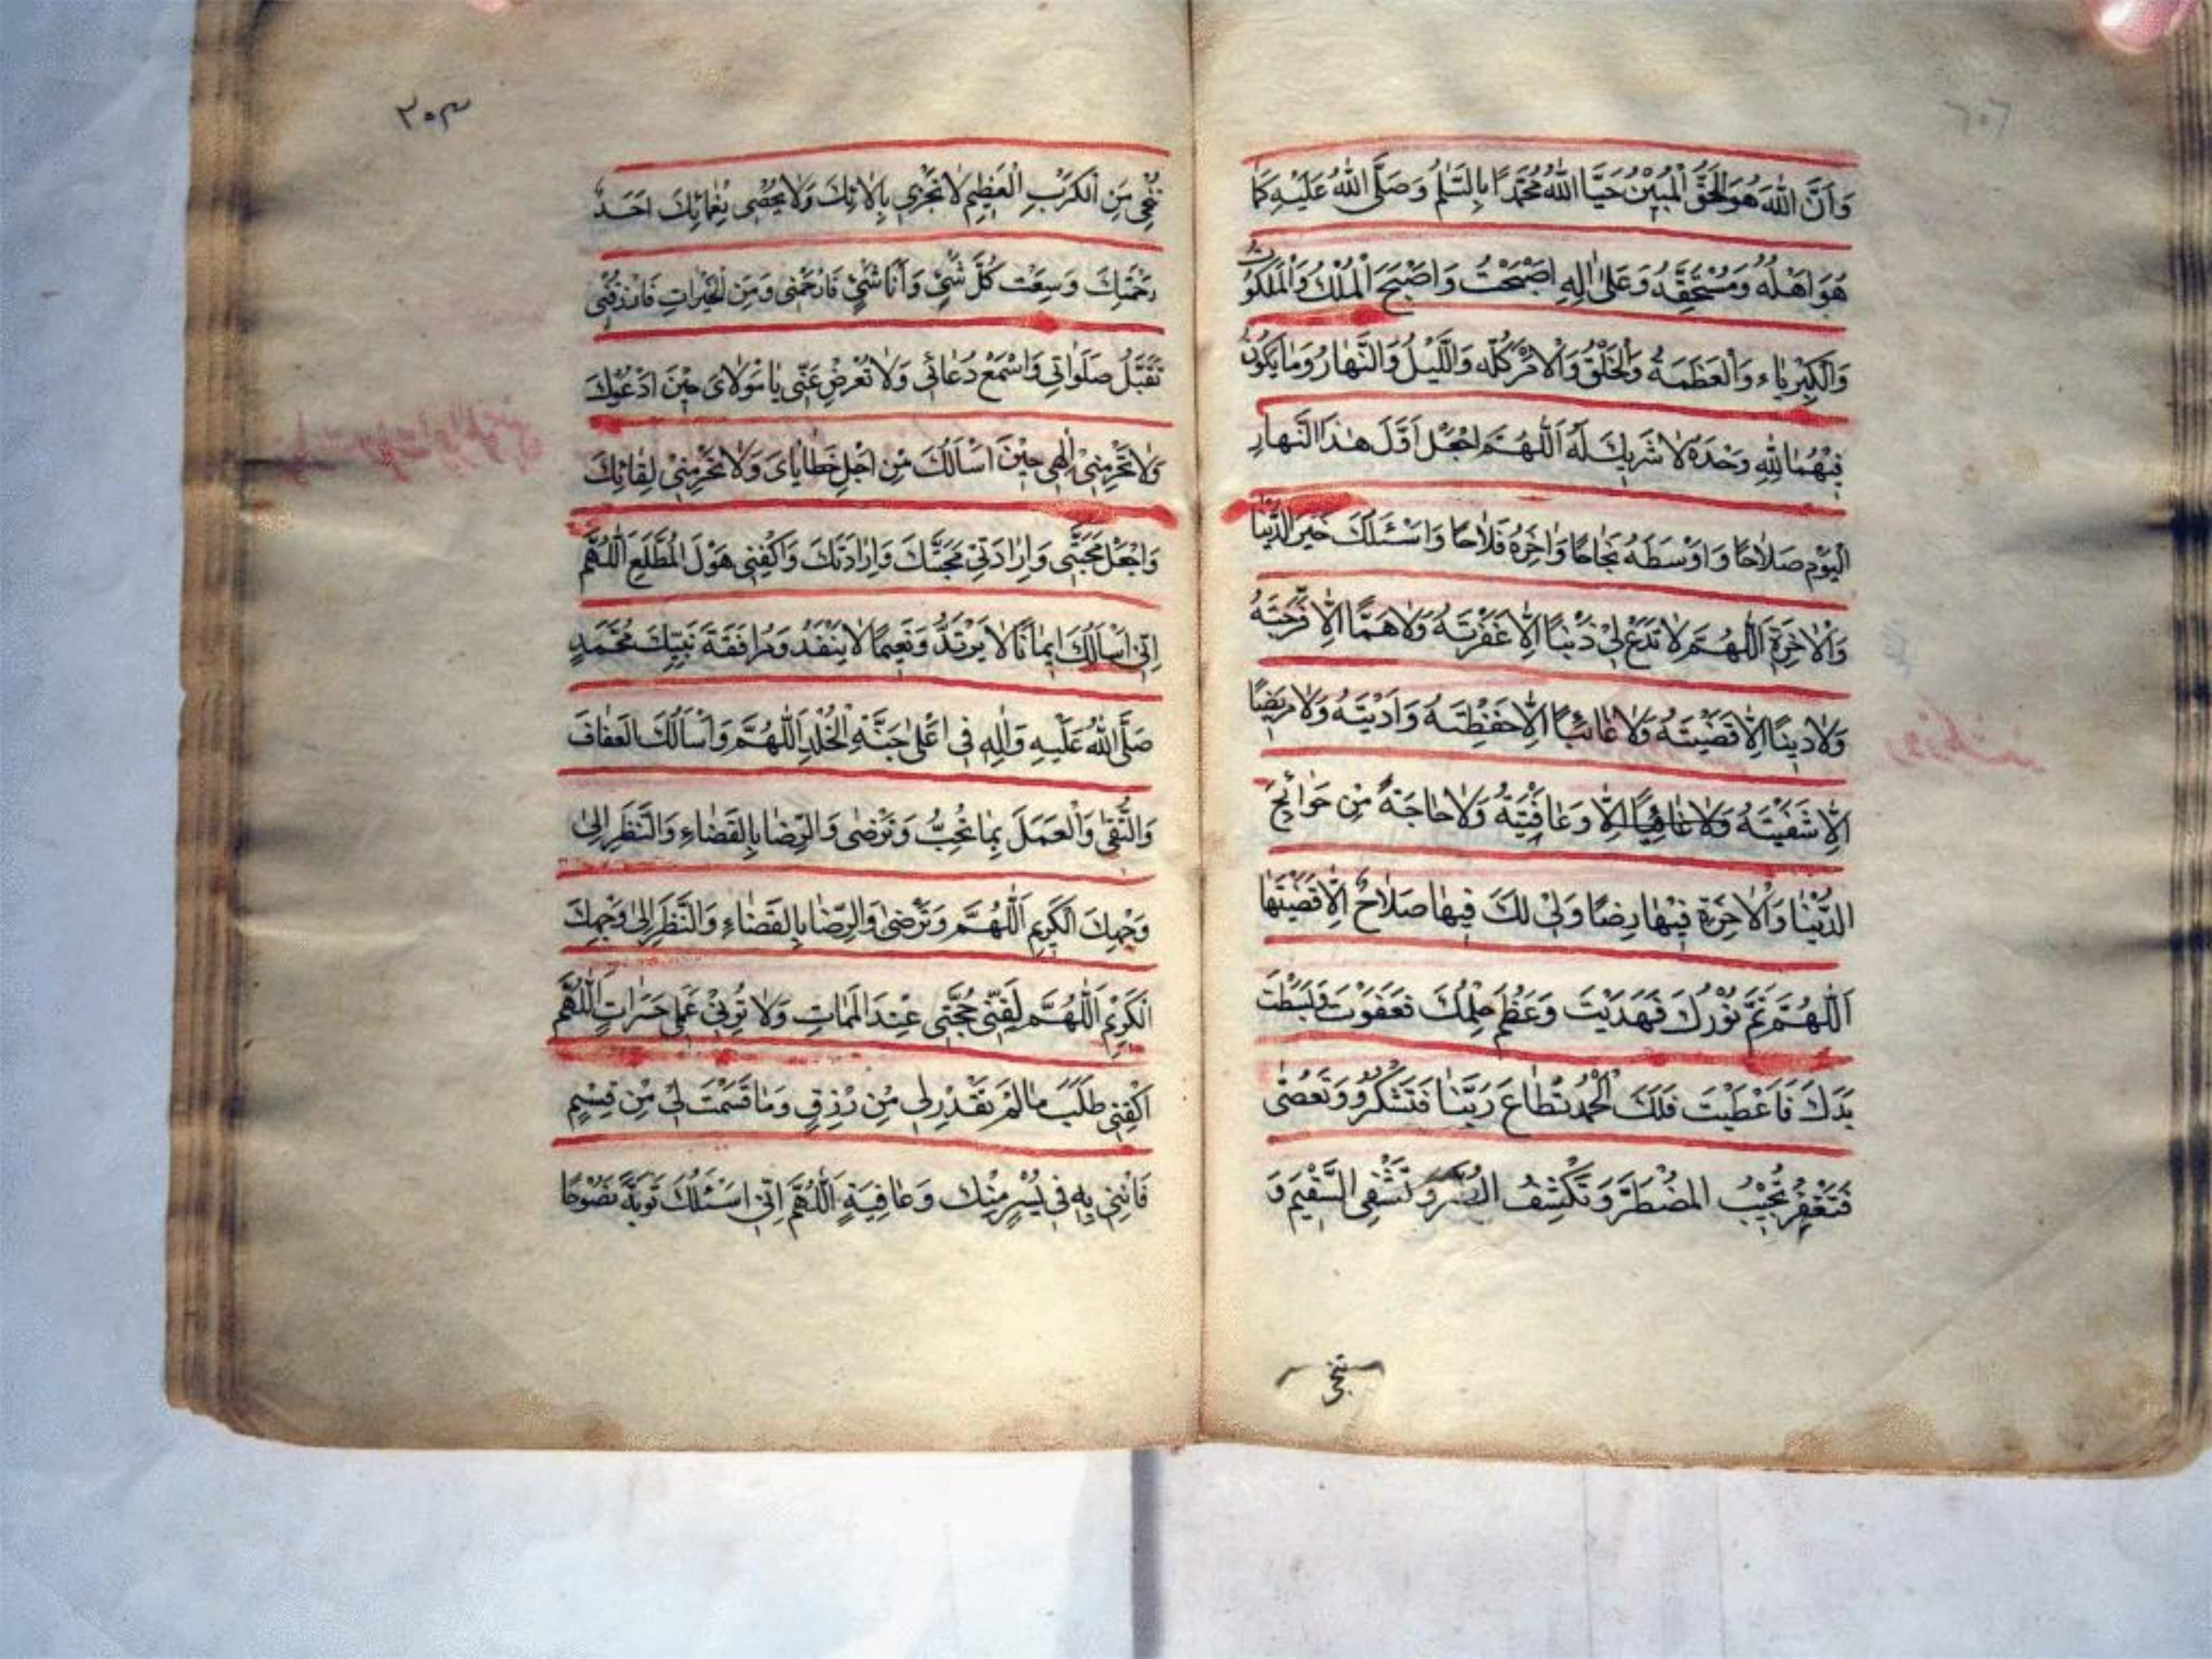 وَاَنَّ اللّٰهَ هُوَ الْحَقُّ الْمُبِيْنُ حَيَّا اللّٰهُ مُحَمَّدًا بِالسَّلٰمُ وَصَلَّى اللّٰهُ عَلَيْهِ كَمٰا
هُوَ اَهْلُهُ وَمُسْتَحِقُّهُ وَعَلىٰ اٰلِهِ اَصْبَحْتُ وَاَصْبَحَ الْمُلْكُ وَالْمَلَكُوتُ
وَالْكِبْرِيٰاءُ وَالْعَظَمَةُ وَالْخَلْقُ وَالْاَمْرُ كُلُّهُ وَاللَّيْلُ وَالنَّهٰارُ وَمٰا يَكُونُ
فِيْهِمٰا لِلّٰهِ وَحْدَهُ لٰا شَرِيكَ لَهُ اَللّٰهُمَّ اجْعَلْ اَوَّلَ هٰذَا النَّهٰارِ
الْيَوْمِ صَلٰاحًا وَاَوْسَطَهُ نَجٰاحًا وَاٰخِرَهُ فَلٰاحًا وَاَسْئَلُكَ خَيْرَ الدُّنْيٰا
وَالْاٰخِرَةِ اَللّٰهُمَّ لٰا تَدَعْ لِيْ ذَنْبًا اِلّٰا غَفَرْتَهُ وَلٰا هَمًّا اِلّٰا فَرَّجْتَهُ
وَلٰا دَيْنًا اِلّٰا قَضَيْتَهُ وَلٰا غٰائِبًا اِلّٰا حَفِظْتَهُ وَاَدَيْتَهُ وَلٰا مَرِيضًا
اِلّٰا شَفَيْتَهُ وَلٰا اِلّٰا وَعٰافَيْتَهُ وَلٰا حٰاجَةً مِنْ حَوٰائِجَ
الدُّنْيٰا وَالْاٰخِرَةِ فِيْهٰا رِضًا وَلِيْ لَكَ فِيهٰا صَلٰاحٌ اِلّٰا قَضَيْتَهٰا
اَللّٰهُمَّ تَمَّ نُوْرُكَ فَهَدَيْتَ وَعَظُمَ حِلْمُكَ فَعَفَوْتَ وَبَسَطْتَ
يَدَكَ فَاَعْطَيْتَ فَلَكَ الْحَمْدُ تُطٰاعُ رَبَّنٰا فَتَشْكُرُ وَتُعْصٰى
فَتَغْفِرُ تُجِيْبُ الْمُضْطَرَّ وَتَكْشِفُ الضُّرَّ وَتَشْفِى السَّقِيْمَ وَ
تُنْجِى
٢٠٣
تُنْجِى مِنَ الْكَرْبِ الْعَظِيْمِ لٰا تَجْزِى بِاٰلٰائِكَ وَلٰا يُحْصٰى نِعْمٰائِكَ اَحَدٌ
رَحْمَتِكَ وَسِعَتْ كُلَّ شَيْءٍ وَاَنَا شَيْءٌ فَارْحَمْنِى وَمِنَ الْخَيْرٰاتِ فَارْزُقْنِى
تَقَبَّلْ صَلَوٰاتِى وَاسْمَعْ دُعٰائِى وَلٰا تُعْرِضْ عَنِّى يٰا مَوْلٰاىَ حِيْنَ اَدْعُوْكَ
وَلٰا تَحْرِمْنِى اِلٰهِى حِيْنَ اَسْاَلُكَ مِنْ اَجْلِ خَطٰايٰاىَ وَلٰا تَحْرِمْنِىْ لِقٰائِكَ
وَاجْعَلْ مَحَبَّتِى وَاِرٰادَتِى مَحَبَّتَكَ وَاِرٰادَتَكَ وَاكْفِنِى هَوْلَ الْمُطَّلَعِ اَللّٰهُمَّ
اِنِّى اَسْاَلُكَ اِيمٰانًا لٰا يَرْتَدُّ وَنَعِيمًا لٰا يَنْفَدُ وَمُرٰافَقَةَ نَبِيِّكَ مُحَمَّدٍ
صَلَّى اللّٰهُ عَلَيْهِ وَاٰلِهِ فِى اَعْلىٰ جَنَّةِ الْخُلْدِ اَللّٰهُمَّ وَاَسْاَلُكَ الْعَفٰافَ
وَالتُّقٰى وَالْعَمَلَ بِمٰا تُحِبُّ وَتَرْضٰى وَالرِّضٰا بِالْقَضٰاءِ وَالنَّظَرَ اِلىٰ
وَجْهِكَ الْكَرِيمِ اَللّٰهُمَّ وَتَرْضٰى وَالرِّضٰا بِالْقَضٰاءِ وَالنَّظَرَ اِلىٰ وَجْهِكَ
الْكَرِيْمِ اَللّٰهُمَّ لَقِّنِّى حُجَّتِى عِنْدَ الْمَمٰاتِ وَلٰا تُرِنِىْ عَمَلِى حَسَرٰاتٍ اَللّٰهُمَّ
اكْفِنِى طَلَبَ مٰا لَمْ تُقَدِّرْ لِى مِنْ رِزْقٍ وَمٰا قَسَمْتَ لِىْ مِنْ قِسْمٍ
فَاْتِنِى بِهِ فِى يُسْرٍ مِنْكَ وَعٰافِيَةٍ اَللّٰهُمَّ اِنِّى اَسْئَلُكَ تَوْبَةً نَصُوْحًا